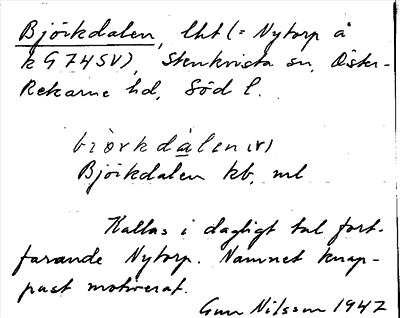 Björkdalen, lht (= Nytorp å
k G 74 SV), Stenkvista sn, Öster-
Rekarne hd, Söd l.
biörkdálen (v)
Björkdalen kb, ml
Kallas i dagligt tal fort-
farande Nytorp. Namnet knap-
past motiverat.
Gun Nilsson 1947